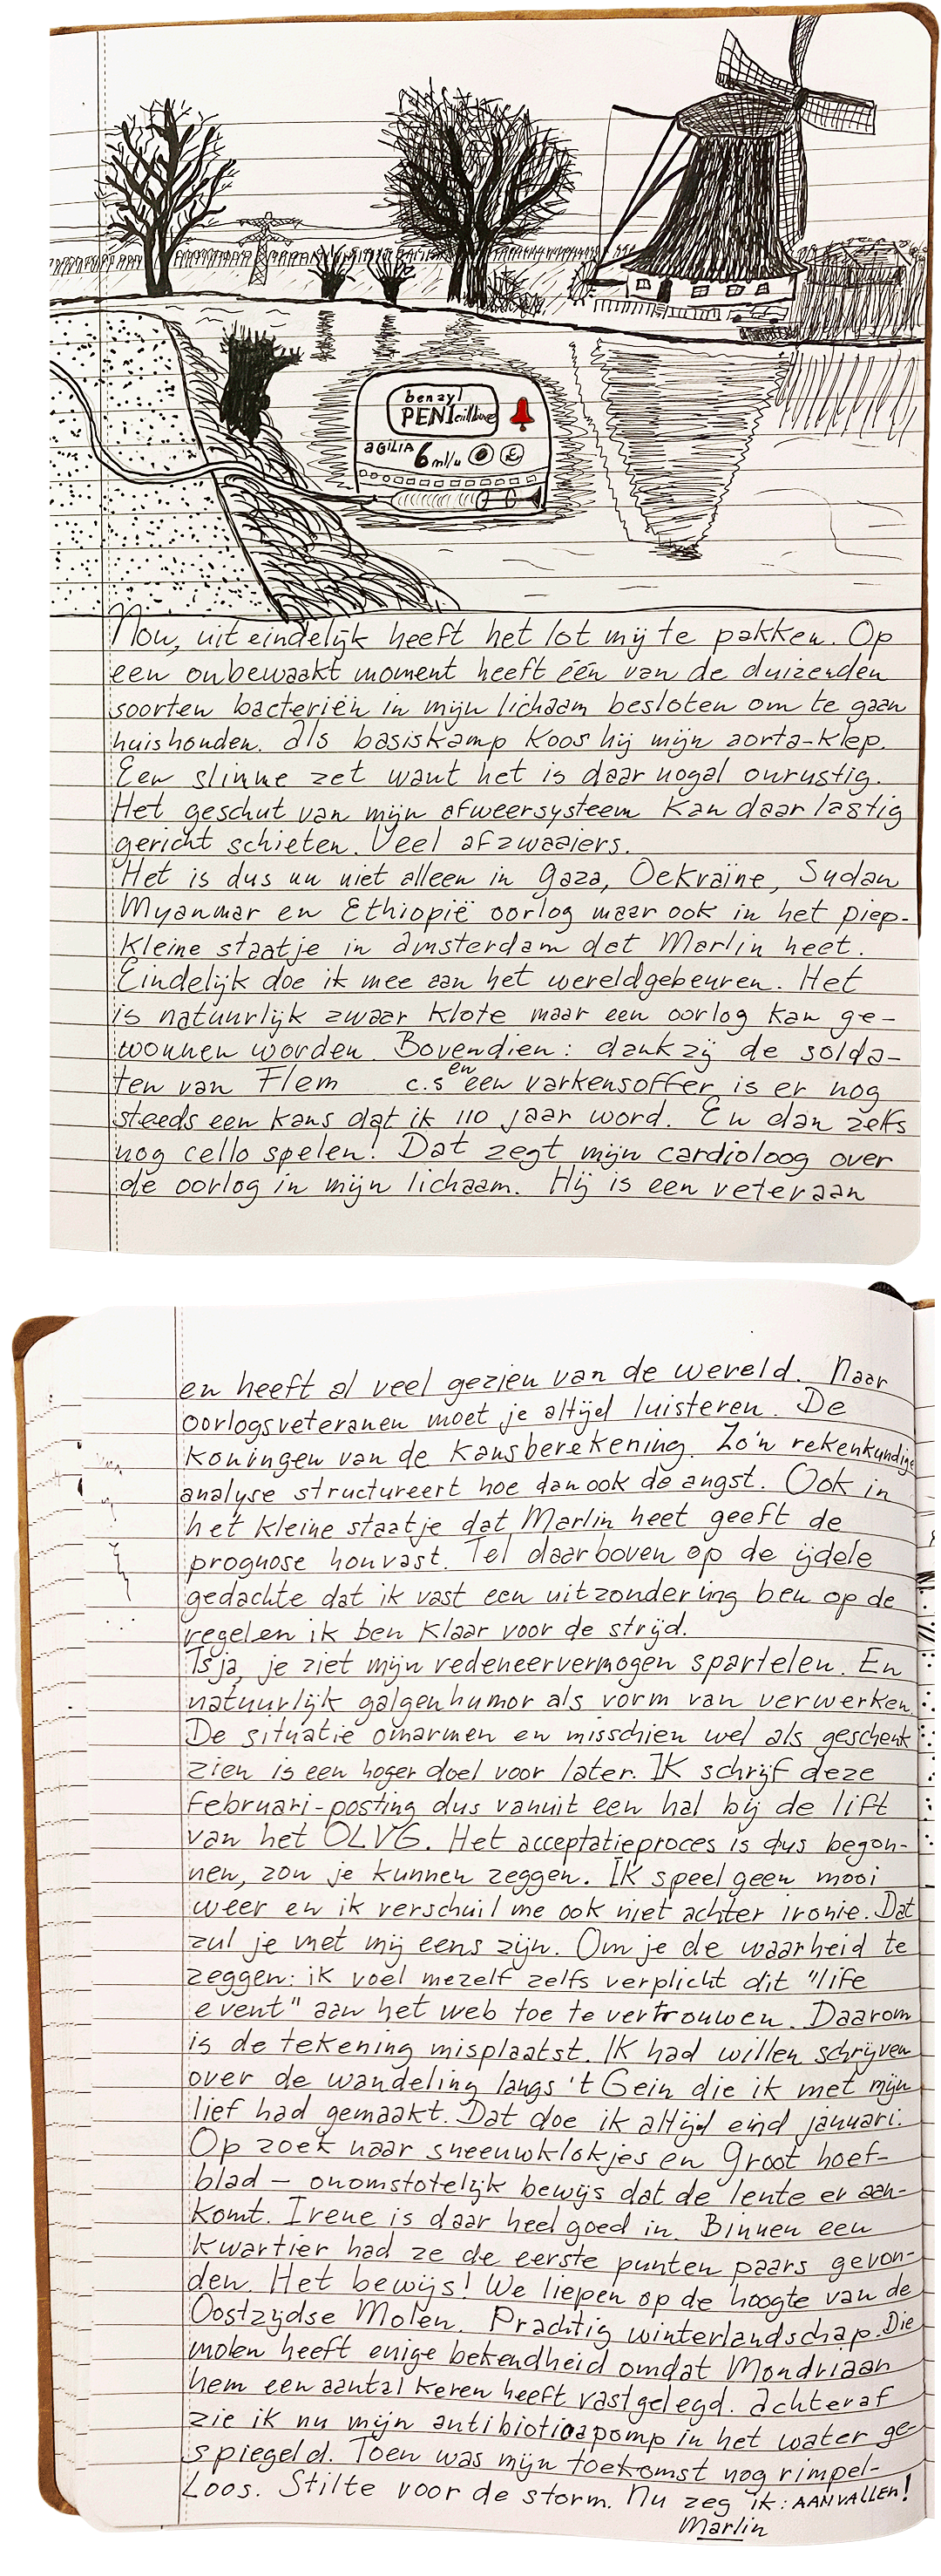 benzyl
PENIcilline
AGILIA 6 ml/u
Nou, uiteindelijk heeft het lot mij te pakken. Op
een onbewaakt moment heeft één van de duizenden
soorten bacteriën in mijn lichaam besloten om te gaan
huishouden. Als basiskamp koos hij mijn aorta-klep.
Een slimme zet want het is daar nogal onrustig.
Het geschut van mijn afweersysteem kan daar lastig
gericht schieten. Veel afzwaaiers.
Het is dus nu niet alleen in Gaza, Oekraïne, Sudan
Myanmar en Ethiopië oorlog maar ook in het piep-
kleine staatje in Amsterdam dat Marlin heet.
Eindelijk doe ik mee aan het wereldgebeuren. Het
is natuurlijk zwaar klote maar een oorlog kan ge-
wonnen worden. Bovendien: dankzij de solda-
ten van Flem c.s en een varkensoffer is er nog
steeds een kans dat ik 110 jaar word. En dan zelfs
nog cello spelen! Dat zegt mijn cardioloog over
de oorlog in mijn lichaam. Hij is een veteraan
en heeft al veel gezien van de wereld. Naar
oorlogsveteranen moet je altijd luisteren. De
koningen van de kansberekening. Zo'n rekenkundige
analyse structureert hoe dan ook de angst. Ook in
het kleine staatje dat Marlin heet geeft de
prognose houvast. Tel daarboven op de ijdele
gedachte dat ik vast een uitzondering ben op de
regel en ik ben klaar voor de strijd.
Tsja, je ziet mijn redeneervermogen spartelen. En
natuurlijk galgenhumor als vorm van verwerken.
De situatie omarmen en misschien wel als geschenk
zien is een hoger doel voor later. Ik schrijf deze
februari-posting dus vanuit een hal bij de lift
van het OLVG. Het acceptatieproces is dus begon-
nen, zou je kunnen zeggen. Ik speel geen mooi
weer en ik verschuil me ook niet achter ironie. Dat
zul je met mij eens zijn. Om je de waarheid te
zeggen: ik voel mezelf zelfs verplicht dit "life
event" aan het web toe te vertrouwen. Daarom
is de tekening misplaatst. Ik had willen schrijven
over de wandeling langs 't Gein die ik met mijn
lief had gemaakt. Dat doe ik altijd eind januari.
Op zoek naar sneeuwklokjes en Groot hoef-
blad – onomstotelijk bewijs dat de lente er aan-
komt. Irene is daar heel goed in. Binnen een
kwartier had ze de eerste punten paars gevon-
den. Het bewijs! We liepen op de hoogte van de
Oostzijdse Molen. Prachtig winterlandschap. Die
molen heeft enige bekendheid omdat Mondriaan
hem een aantal keren heeft vastgelegd. Achteraf
zie ik nu mijn antibioticapomp in het water ge
spiegeld. Toen was mijn toekomst nog rimpel-
Loos. Stilte voor de storm. Nu zeg ik: AANVALLEN!
Marlin